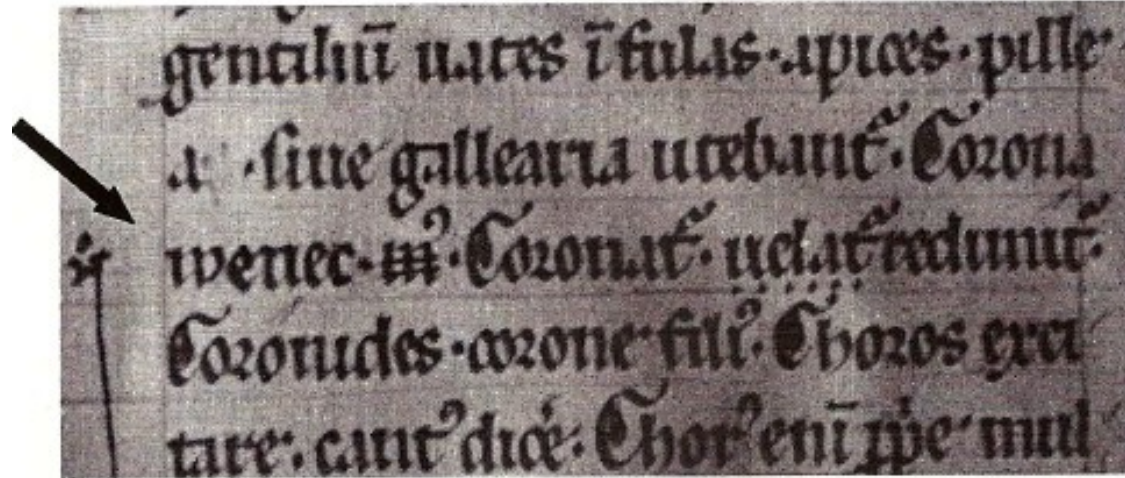 gentiliū uates ī fulas · apices · pille
a · siue gallearia utebanť · Corona
wenec · mꝰ · Coronať · uelať redimiť ·
Coronides · corone filiꝰ · Choros exci
tare · cantꝰ dicē · Chorꝰ enī ꝓpe mul